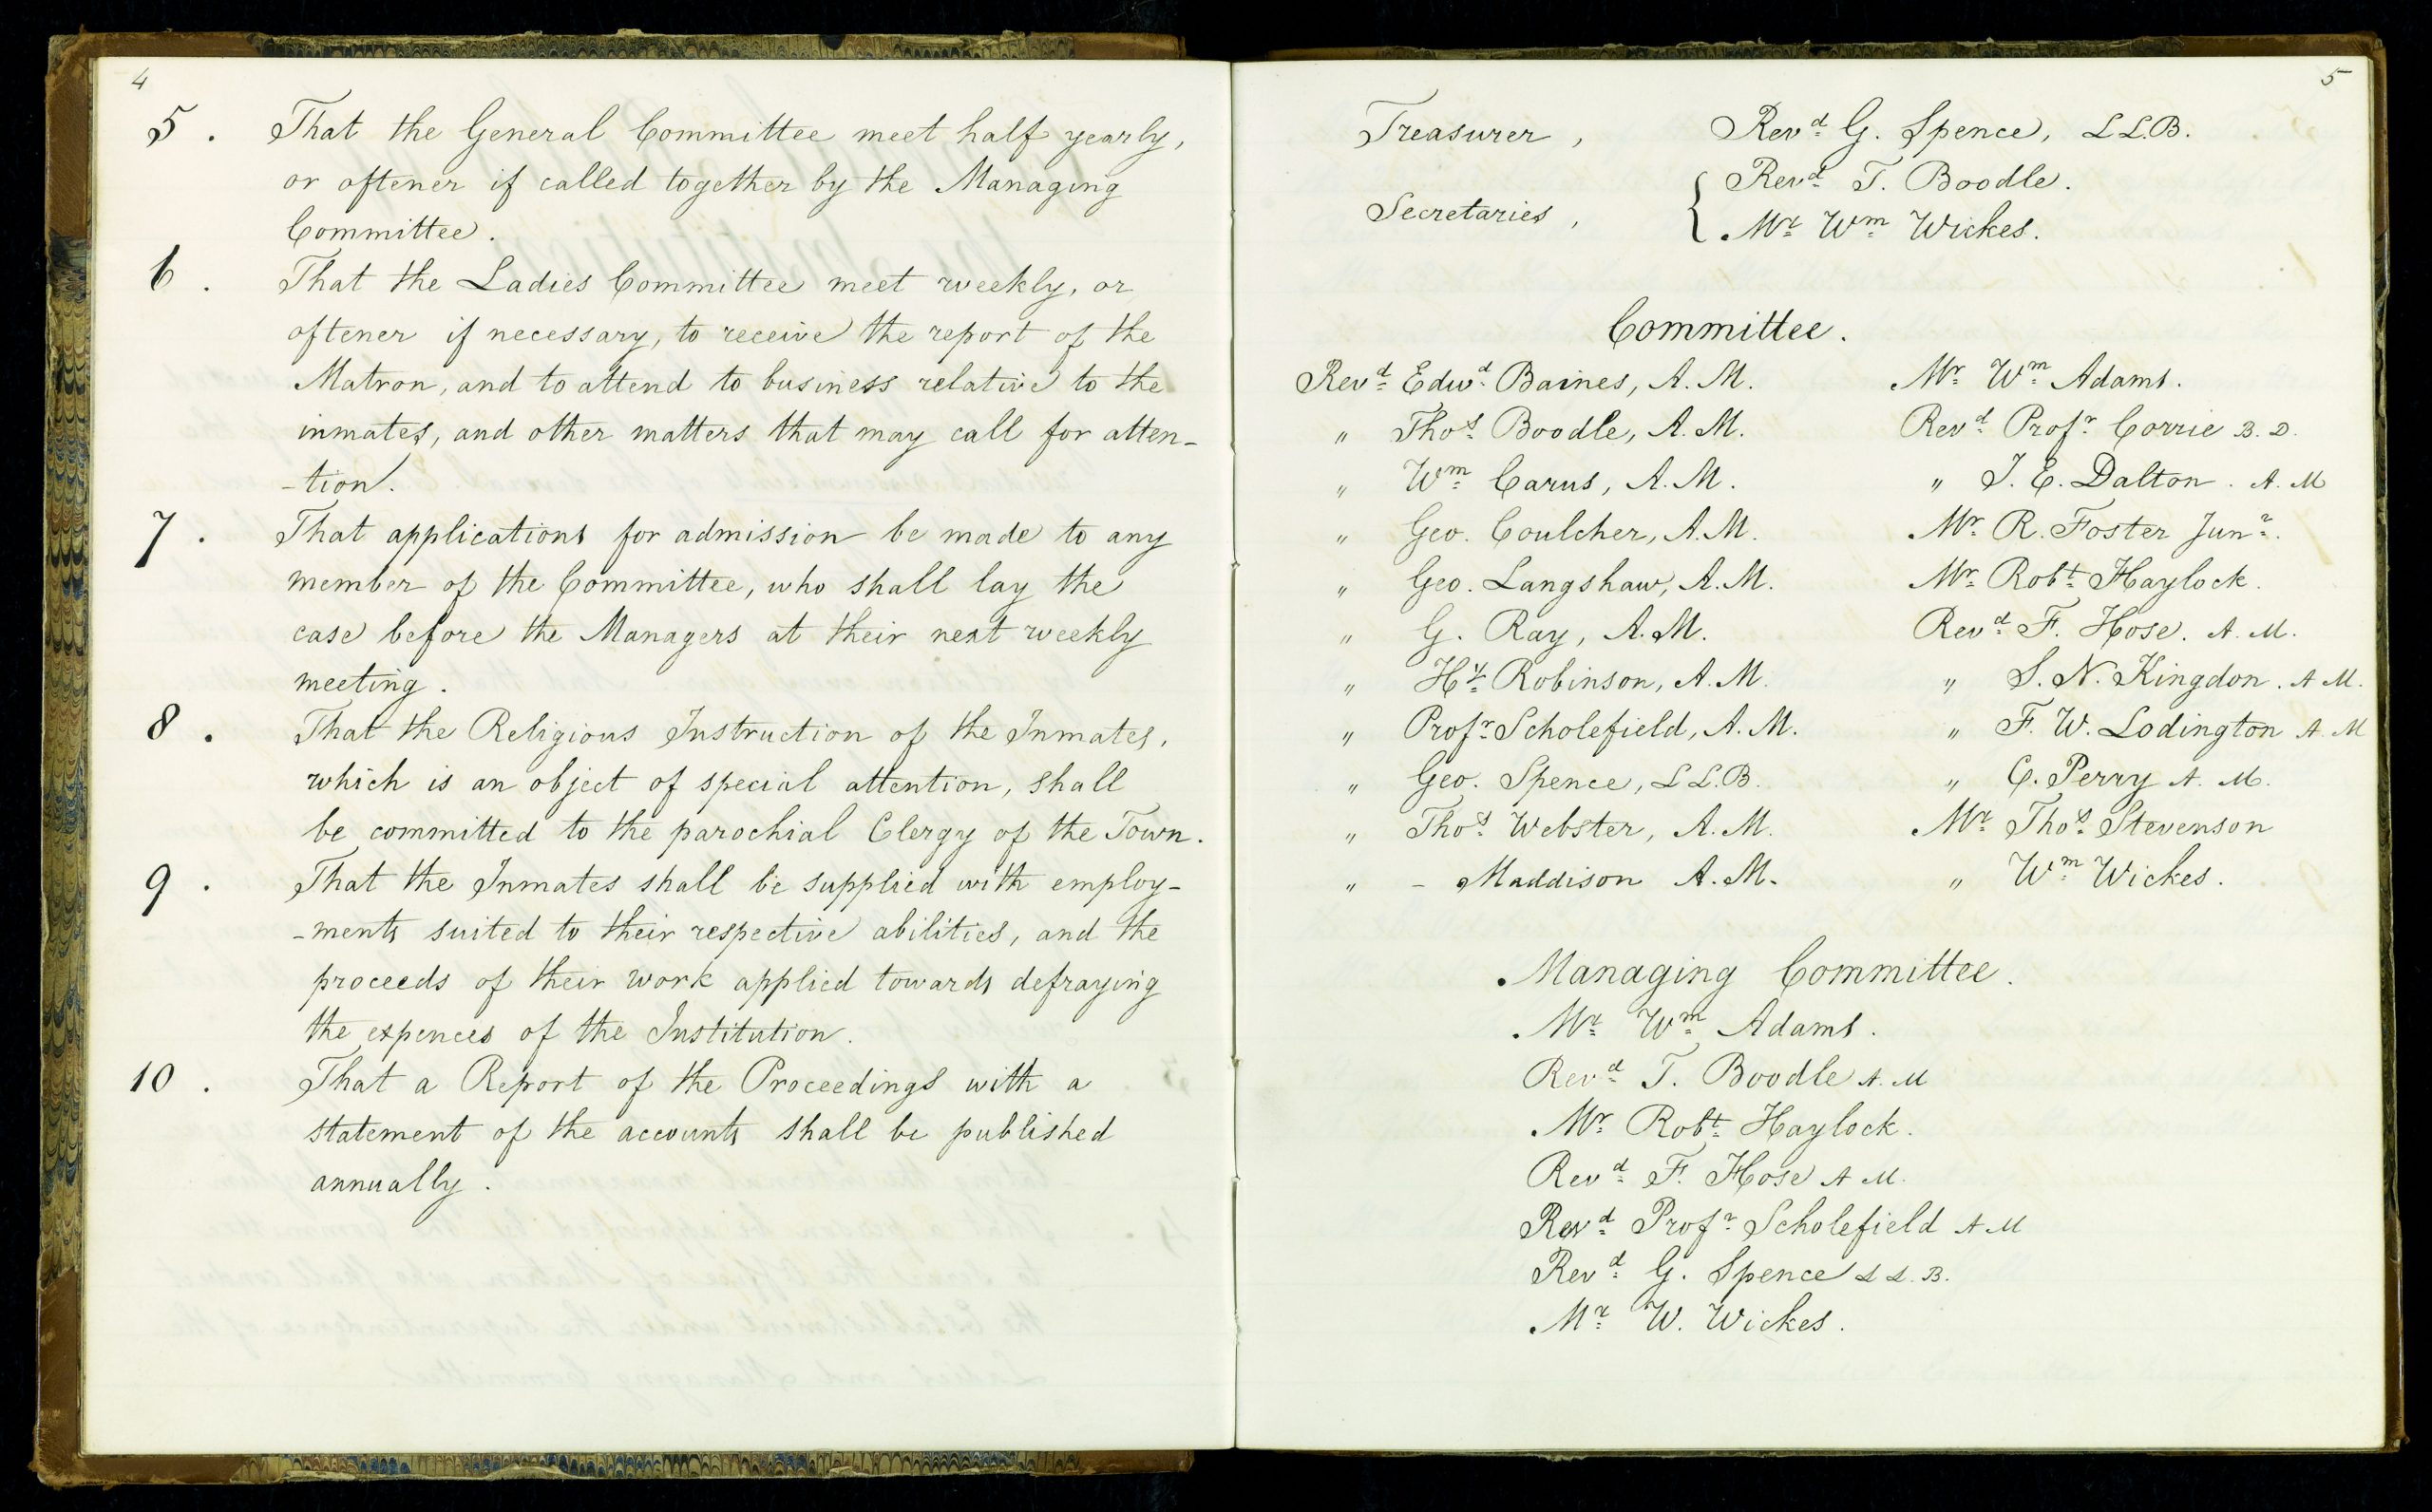 4
5. That the General Committee meet half yearly,
or oftener if called together by the Managing
Committee.
6. That the Ladies Committee meet weekly, or
oftener if necessary, to receive the report of the
Matron, and to attend to business relative to the
inmates, and other matters that may call for atten-
-tion.
7. That applications for admission be made to any
member of the Committee, who shall lay the
case before the Managers at their next weekly
meeting.
8. That the Religious Instruction of the Inmates,
which is an object of special attention, shall
be committed to the parochial Clergy of the Town.
9. That the Inmates shall be supplied with employ-
-ments suited to their respective abilities, and the
proceeds of their work applied towards defraying
the expences of the Institution.
10. That a Report of the Proceedings with a
statement of the accounts shall be published
annually.
5
Treasurer, Revd. G. Spence, LL.B.
Secretaries, { Revd. T. Boodle.
Mr. Wm Wickes.
Committee.
Revd. Edwd. Baines, A.M.
" Thos. Boodle, A.M.
" Wm. Carus, A.M.
" Geo. Coulcher, A.M.
" Geo. Langshaw, A.M.
" G. Ray, A.M.
" Hy. Robinson, A.M.
" Profr. Scholefield, A.M.
" Geo. Spence, LL.B.
" Thos. Webster, A.M.
" - Maddison A.M.
Mr. Wm. Adams.
Revd. Profr. Corrie B.D.
" J. E. Dalton. A.M
Mr. R. Foster Junr.
Mr. Robt. Haylock.
Revd. F. Hose. A.M.
" S. N. Kingdon. A M.
" F. W. Lodington A.M
" C. Perry A.M.
Mr. Thos. Stevenson
" Wm. Wickes.
Managing Committee.
Mr. Wm. Adams.
Revd. T. Boodle A.M
Mr. Robt. Haylock.
Revd. F. Hose A M.
Revd. Profr. Scholefield A M
Revd. G. Spence L L.B.
Mr. W. Wickes.